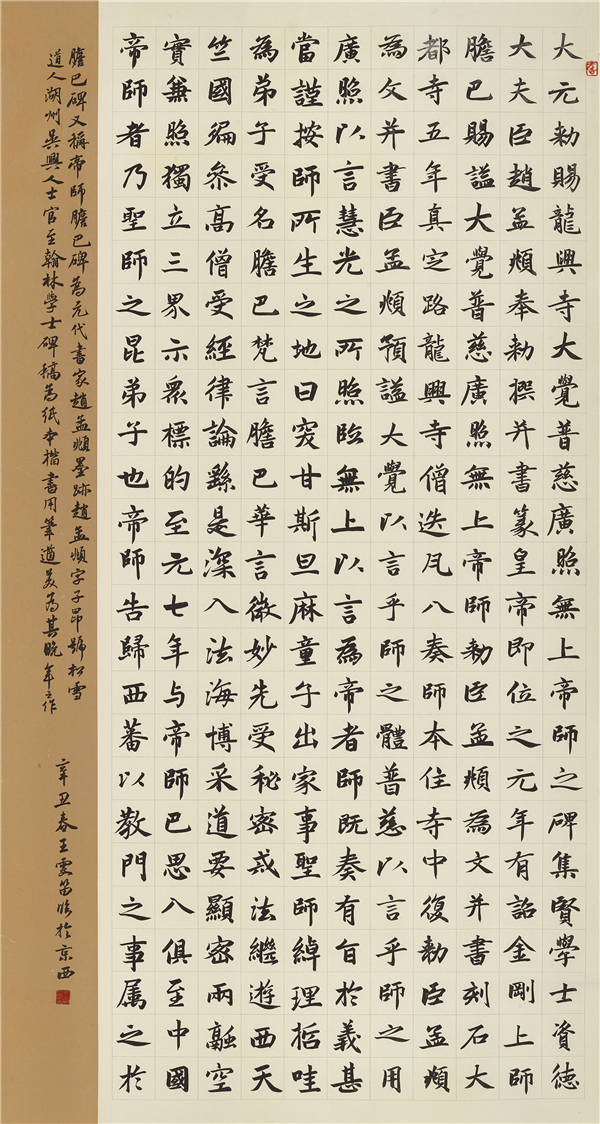 大元勅賜龍興寺大覺普慈廣照無上帝師之碑集賢學士資德
大夫臣趙孟頫奉勅撰并書篆皇帝即位之元年有詔金剛上師
膽巴賜謚大覺普慈廣照無上帝師勅臣孟頫為文并書刻石大
都寺五年真定路龍興寺僧迭凡八奏師本住寺中復勅臣孟頫
為文并書臣孟頫預謚大覺以言乎師之體普慈以言乎師之用
廣照以言慧光之所照臨無上以言為帝者師既奏有旨於義甚
當謹按師所生之地曰突甘斯旦麻童子出家事聖師綽理哲哇
為弟子受名膽巴梵言膽巴華言微妙先受秘密戒法繼遊西天
竺國徧叅高僧受經律論繇是深入法海博采道要顯密兩融空
實兼照獨立三界示眾標的至元七年与帝師巴思八俱至中國
帝師者乃聖師之昆弟子也帝師告歸西蕃以教門之事属之於
膽巴碑又稱帝師膽巴碑為元代書家趙孟頫墨跡趙孟頫字子昂號松雪
道人湖州吳興人士官至翰林學士碑稿為紙本楷書用筆遒美為其晚年之作
辛丑春王雯笛臨於京西